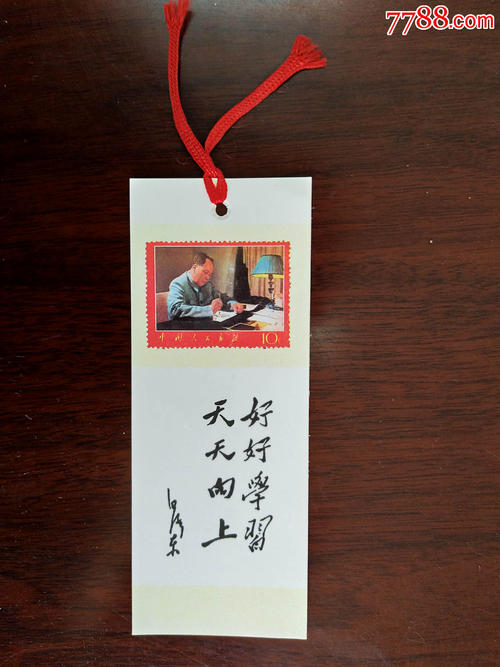 7788.com
中国人民邮政 10分
好好學習
天天向上
毛泽东